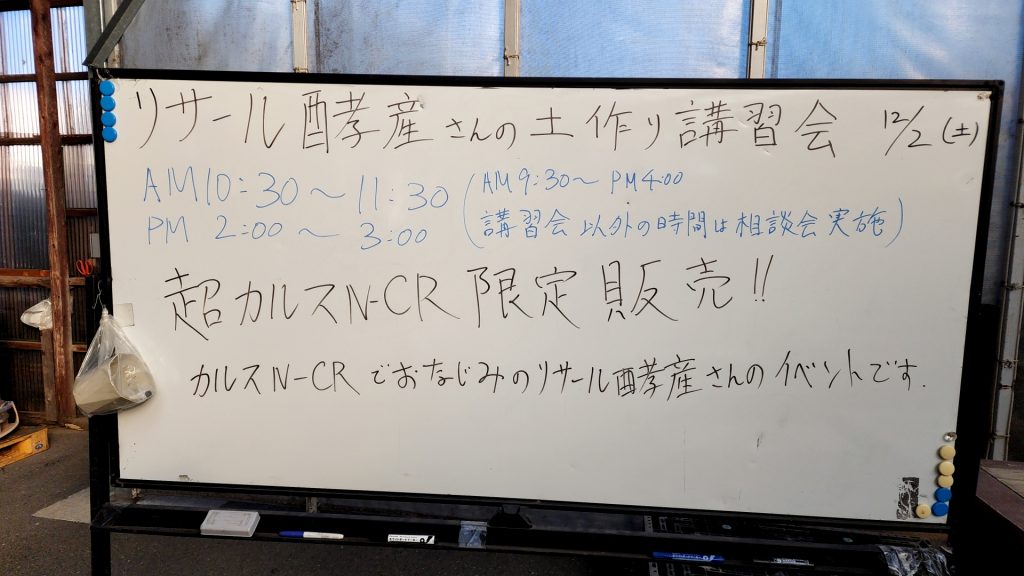 リサール酵産さんの土作り講習会 12/2(土)
AM10:30～11:30 (AM9:30～PM4:00
PM 2:00～3:00 講習会以外の時間は相談会実施)
超カルスN-CR 限定販売!!
カルスN-CRでおなじみのリサール酵産さんのイベントです.